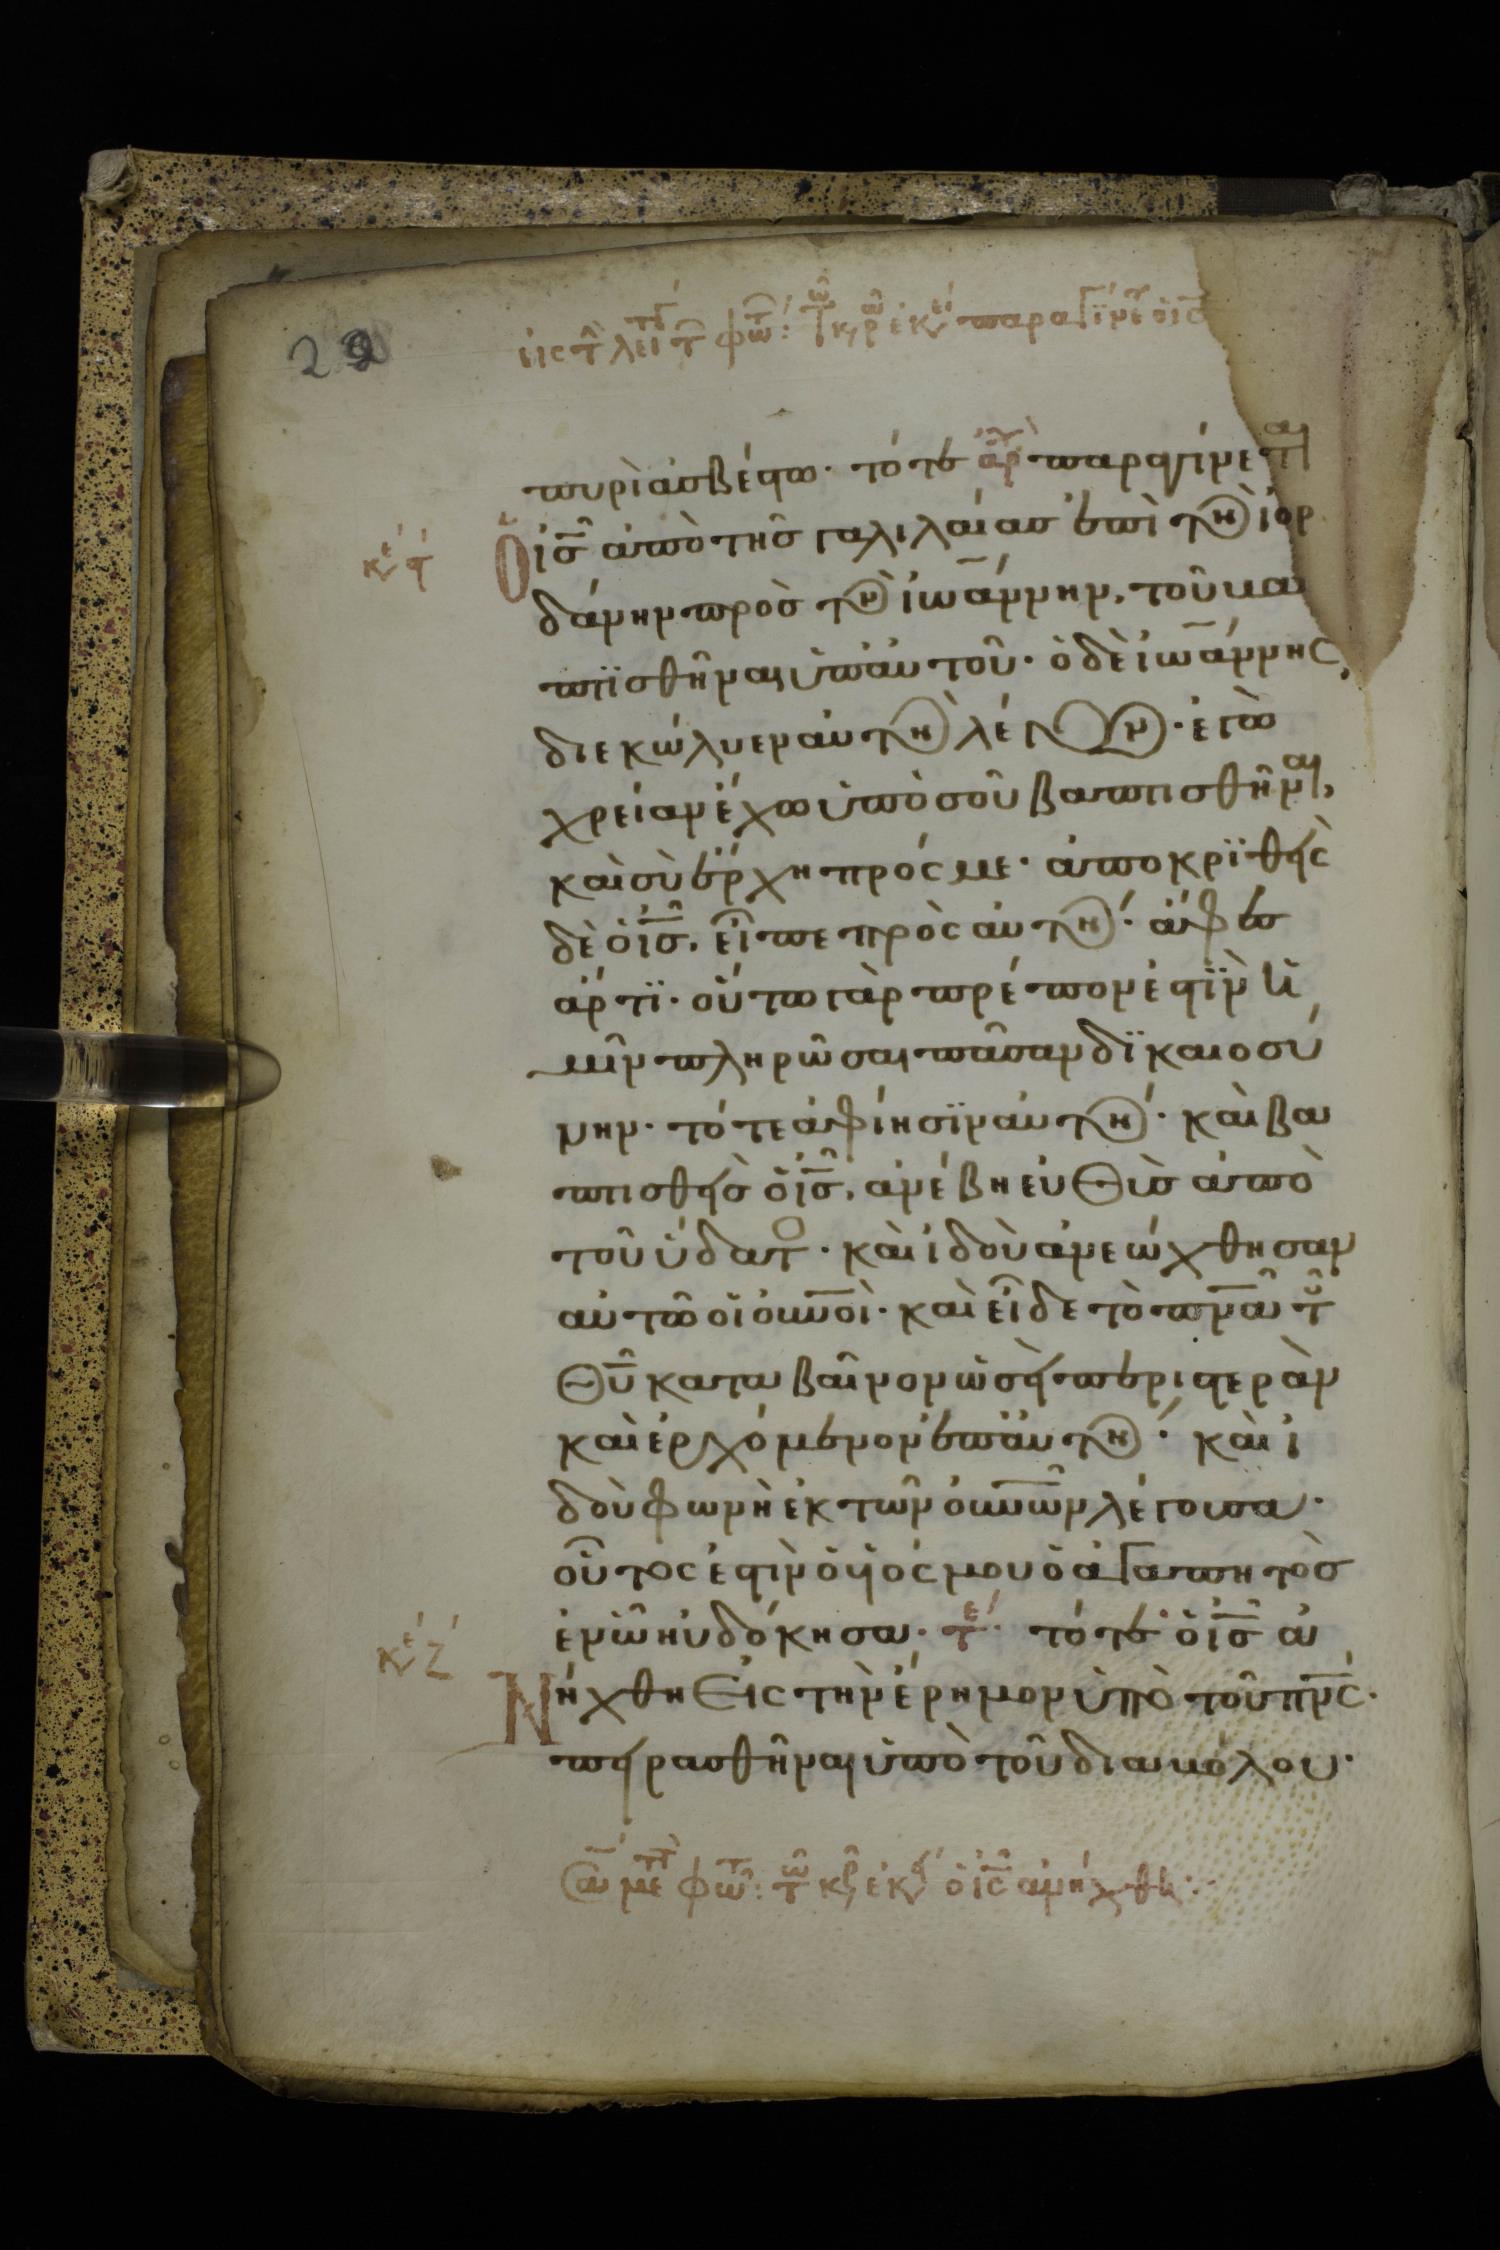 29
πυρὶ ἀσβέστω· τότε ἀρ̅χ παραγίνεται
ὁ ἰς̅ ἀπὸ τῆς γαλιλαίας ἐπὶ τὸν ἰορ
δάνην πρὸς τὸν ἰωάννην, τοῦ βα
πϊσθῆναι ὑπ' αὐτοῦ· ὁ δὲ ἰωάννης,
διεκώλυεν αὐτὸν λέγων· ἐγὼ
χρείαν ἔχω ὑπὸ σοῦ βαπτισθῆναι,
καὶ σὺ ἔρχη πρός με· ἀποκρϊθεὶς
δὲ ὁ ἰς̅, εἶπε πρὸς αὐτόν· ἄφες
ἄρτϊ· οὕτω γὰρ πρέπον ἐστϊν ἡ
μῖν πληρῶσαι πᾶσαν δϊκαιοσύ
νην· τότε ἀφίησϊν αὐτόν· καὶ βα
πτισθεὶς ὁ ἰς̅, ἀνέβη εὐθὺς ἀπὸ
τοῦ ὕδατο· καὶ ἰδοὺ ἀνεώχθησαν
αὐτῶ οἱ οὐνοὶ· καὶ εἶδε τὸ πνα̅ τοῦ
θυ̅ καταβαῖνον ὡσεὶ περιστερὰν
καὶ ἐρχόμενον ἐπ' αὐτόν· καὶ ἰ
δοὺ φωνὴ ἐκ τῶν οὐνῶν λέγουσα·
οὗτος ἐστὶν ὁ υἱός μου ὁ ἀγαπητὸς
ἐν ὧ ηὐδόκησα· τε· τότε ὁ ἰς̅ ἀ
κε ζ
Νήχθη εἰς τὴν ἔρημον ὑπὸ τοῦ πνς̅·
πειρασθῆναι ὑπὸ τοῦ διαβόλου·
ὁ ἰς̅ ἀνήχθη